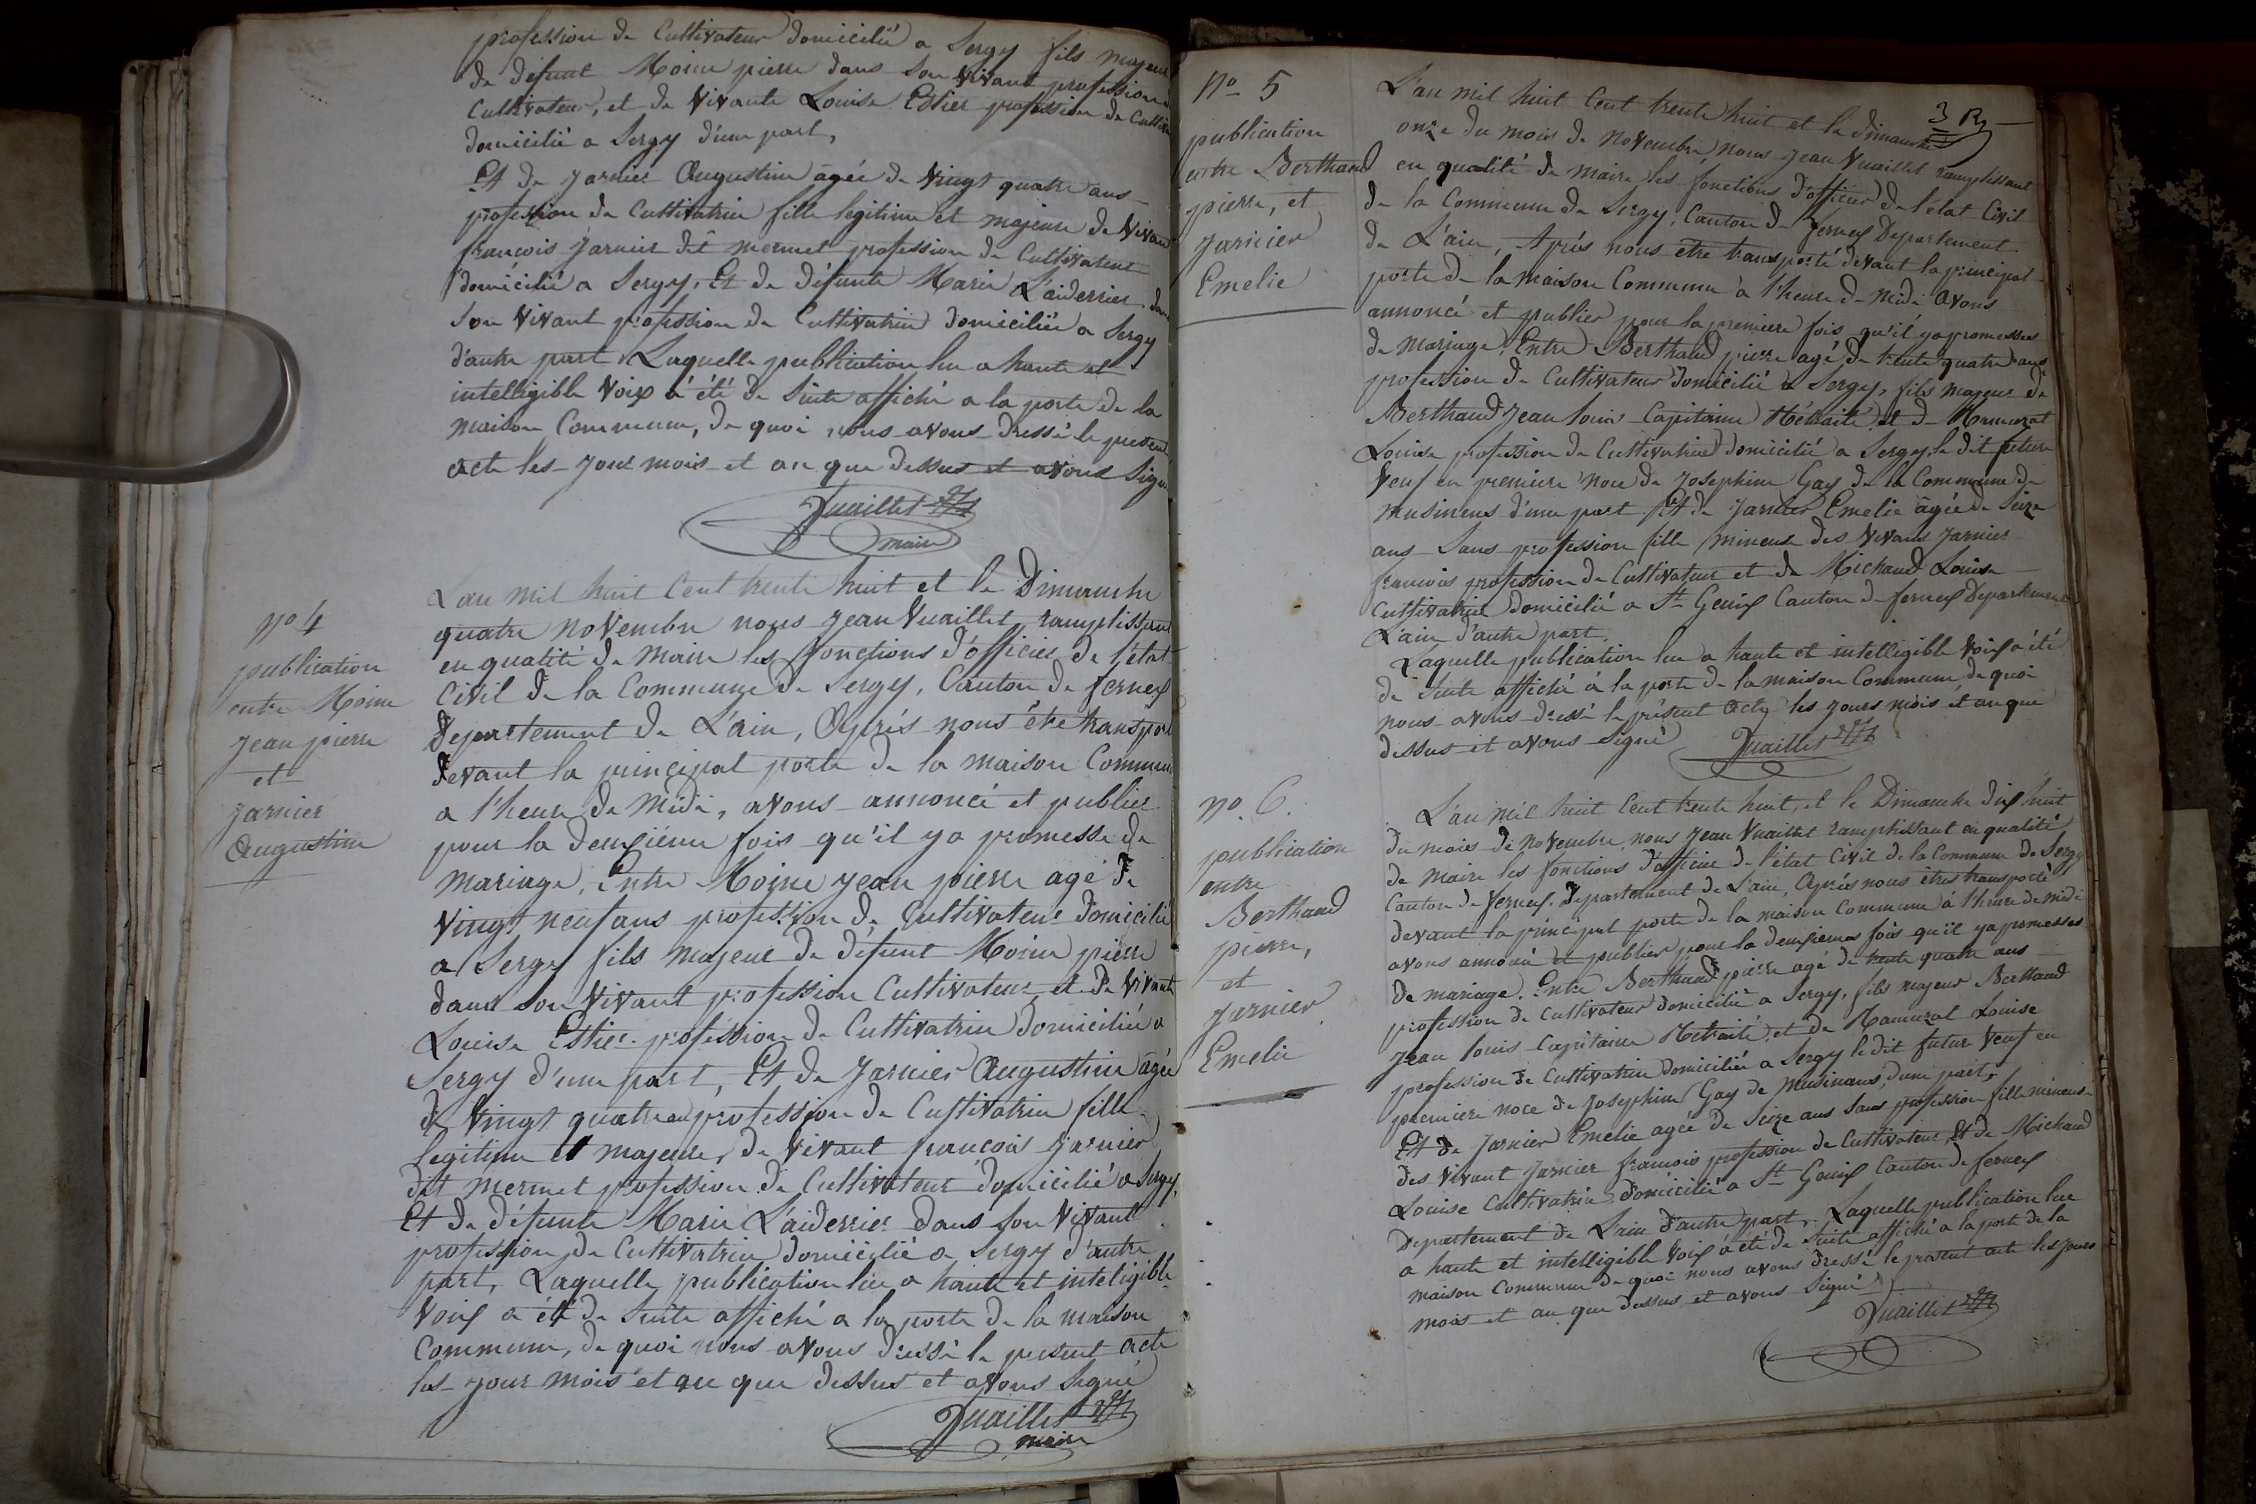 profession de Cultivateur domicilié a Sergy fils majeur
de défunt Moine pierre dans son vivant profession
Cultivateur, et de vivante Louise Estier profession de Cultiv
domicilié a Sergy d'une part,
Et de Jarnier Augustine agée de vingt quatre ans
profession de Cultivatrice fille legitime et majeure de vivant
francois Jarnier dit mermet profession de Cultivateur
domicilié a Sergy, Et de défunte Marie L'aiderrier dans
son vivant profession de Cultivatrice domiciliée a Sergy
d'autre part, Laquelle publication lue a haute et
intelligible voix a été de suite affiché a la porte de la
maison Commune, de quoi nous avons dressé le present
acte les jour mois et an que dessus et avons signé
Vuaillet
maire
No 4
publication
entre Moine
Jean pierre
et
Jarnier
Augustine
L'an mil huit Cent trente huit et le Dimanche
quatre novembre nous Jean Vuaillet ramplissant
en qualité de maire les fonctions d'officier de l'état
Civil de la Commune de Sergy, Canton de ferney
Departement de L'ain, Après nous être transpor
devant la principal porte de la maison Commune
a l'heure de midi, avons annoncé et publier
pour la deuxième fois qu'il y a promesse de
mariage, Entre Moine Jean pierre agé de
vingt neuf ans profession de Cultivateur domicilié
a Sergy fils majeur de défunt Moine pierre
dans son vivant profession Cultivateur et de vivante
Louise Estier profession de Cultivatrice domiciliée a
Sergy d'une part, Et de Jarnier Augustine agée
de vingt quatre ans profession de Cultivatrice fille
legitime et majeure, de vivant francois Jarnier
dit mermet profession de Cultivateur domicilié a Sergy,
Et de défunte Marie L'aiderrier dans son vivant
profession de Cultivatrice domicilié a Sergy d'autre
part, Laquelle publication lue a haute et inteligible
voix a été de suite affiché a la porte de la maison
Commune, de quoi nous avons dressé le present acte
les jour mois et an que dessus et avons signé
Vuaillet
maire
3
No 5
publication
entre Berthaud
pierre, et
Jarnier
Emelie
L'an mil huit Cent trente huit et le dimanche
onze du mois de novembre nous Jean Vuaillet ramplissant
en qualité de maire les fonctions d'officier de l'état Civil
de la Commune de Sergy, Canton de ferney Departement
de L'ain, Après nous etre transporté devant la principal
porte de la maison Commune à l'heure de midi avons
annoncé et publier pour la premiere fois qu'il y a promesses
de mariage, Entre Berthaud pierre agé de trente quatre ans
profession de Cultivateur domicilié a Sergy, fils majeur de
Berthaud Jean louis Capitaine Retraité et de Mamurat
Louise profession de Cultivatrice domicilié a Sergy, le dit futur
veuf en premiere noce de Josephine Gay de la Commune de
musinens d'une part Et de Jarnier Emelie agée de Seize
ans sans profession fille mineur des vivans Jarnier
francois profession de Cultivateur et de Michaud Louise
Cultivatrice domicilié a St Genix Canton de ferney Departement
L'ain d'autre part.
Laquelle publication lue a haute et intelligible voix a été
de suite affiché à la porte de la maison Commune de quoi
nous avons dressé le présent acte les jours mois et an que
dessus et avons signé Vuaillet
No. 6.
publication
entre
Berthaud
pierre,
et
Jarnier
Emelie
L'an mil huit Cent trente huit, et le Dimanche dix huit
du mois de novembre, nous Jean Vuaillet ramplissant en qualité
de maire les fonctions d'officier de l'état Civil de la Commune de Sergy
Canton de ferney. Departement de L'ain, Après nous etres transporté
devant la principal porte de la maison Commune à l'heure de midi
avons annoncé et publier pour la deuxiemes fois qu'il y a promesses
de mariage. Entre Berthaud pierre agé de trente quatre ans
profession de Cultivateur domicilié a Sergy, fils majeur Berthaud
Jean louis Capitaine Retraité, et de Mamurat Louise
profession de Cultivatrice domiciliée a Sergy le dit futur veuf en
premiere noce de Josephine Gay de Musinans, d'une part,
Et de Jarnier Emelie agée de Seize ans sans profession fille mineur
des vivant Jarnier francois profession de Cultivateur Et de Michaud
Louise Cultivatrice domicilié a St Genix Canton de ferney
Departement de L'ain d'autre part. Laquelle publication lue
a haute et intelligible voix a été de suite affiché a la porte de la
maison Commune de quoi nous avons dressé le present acte les jours
mois et an que dessus et avons signé
Vuaillet